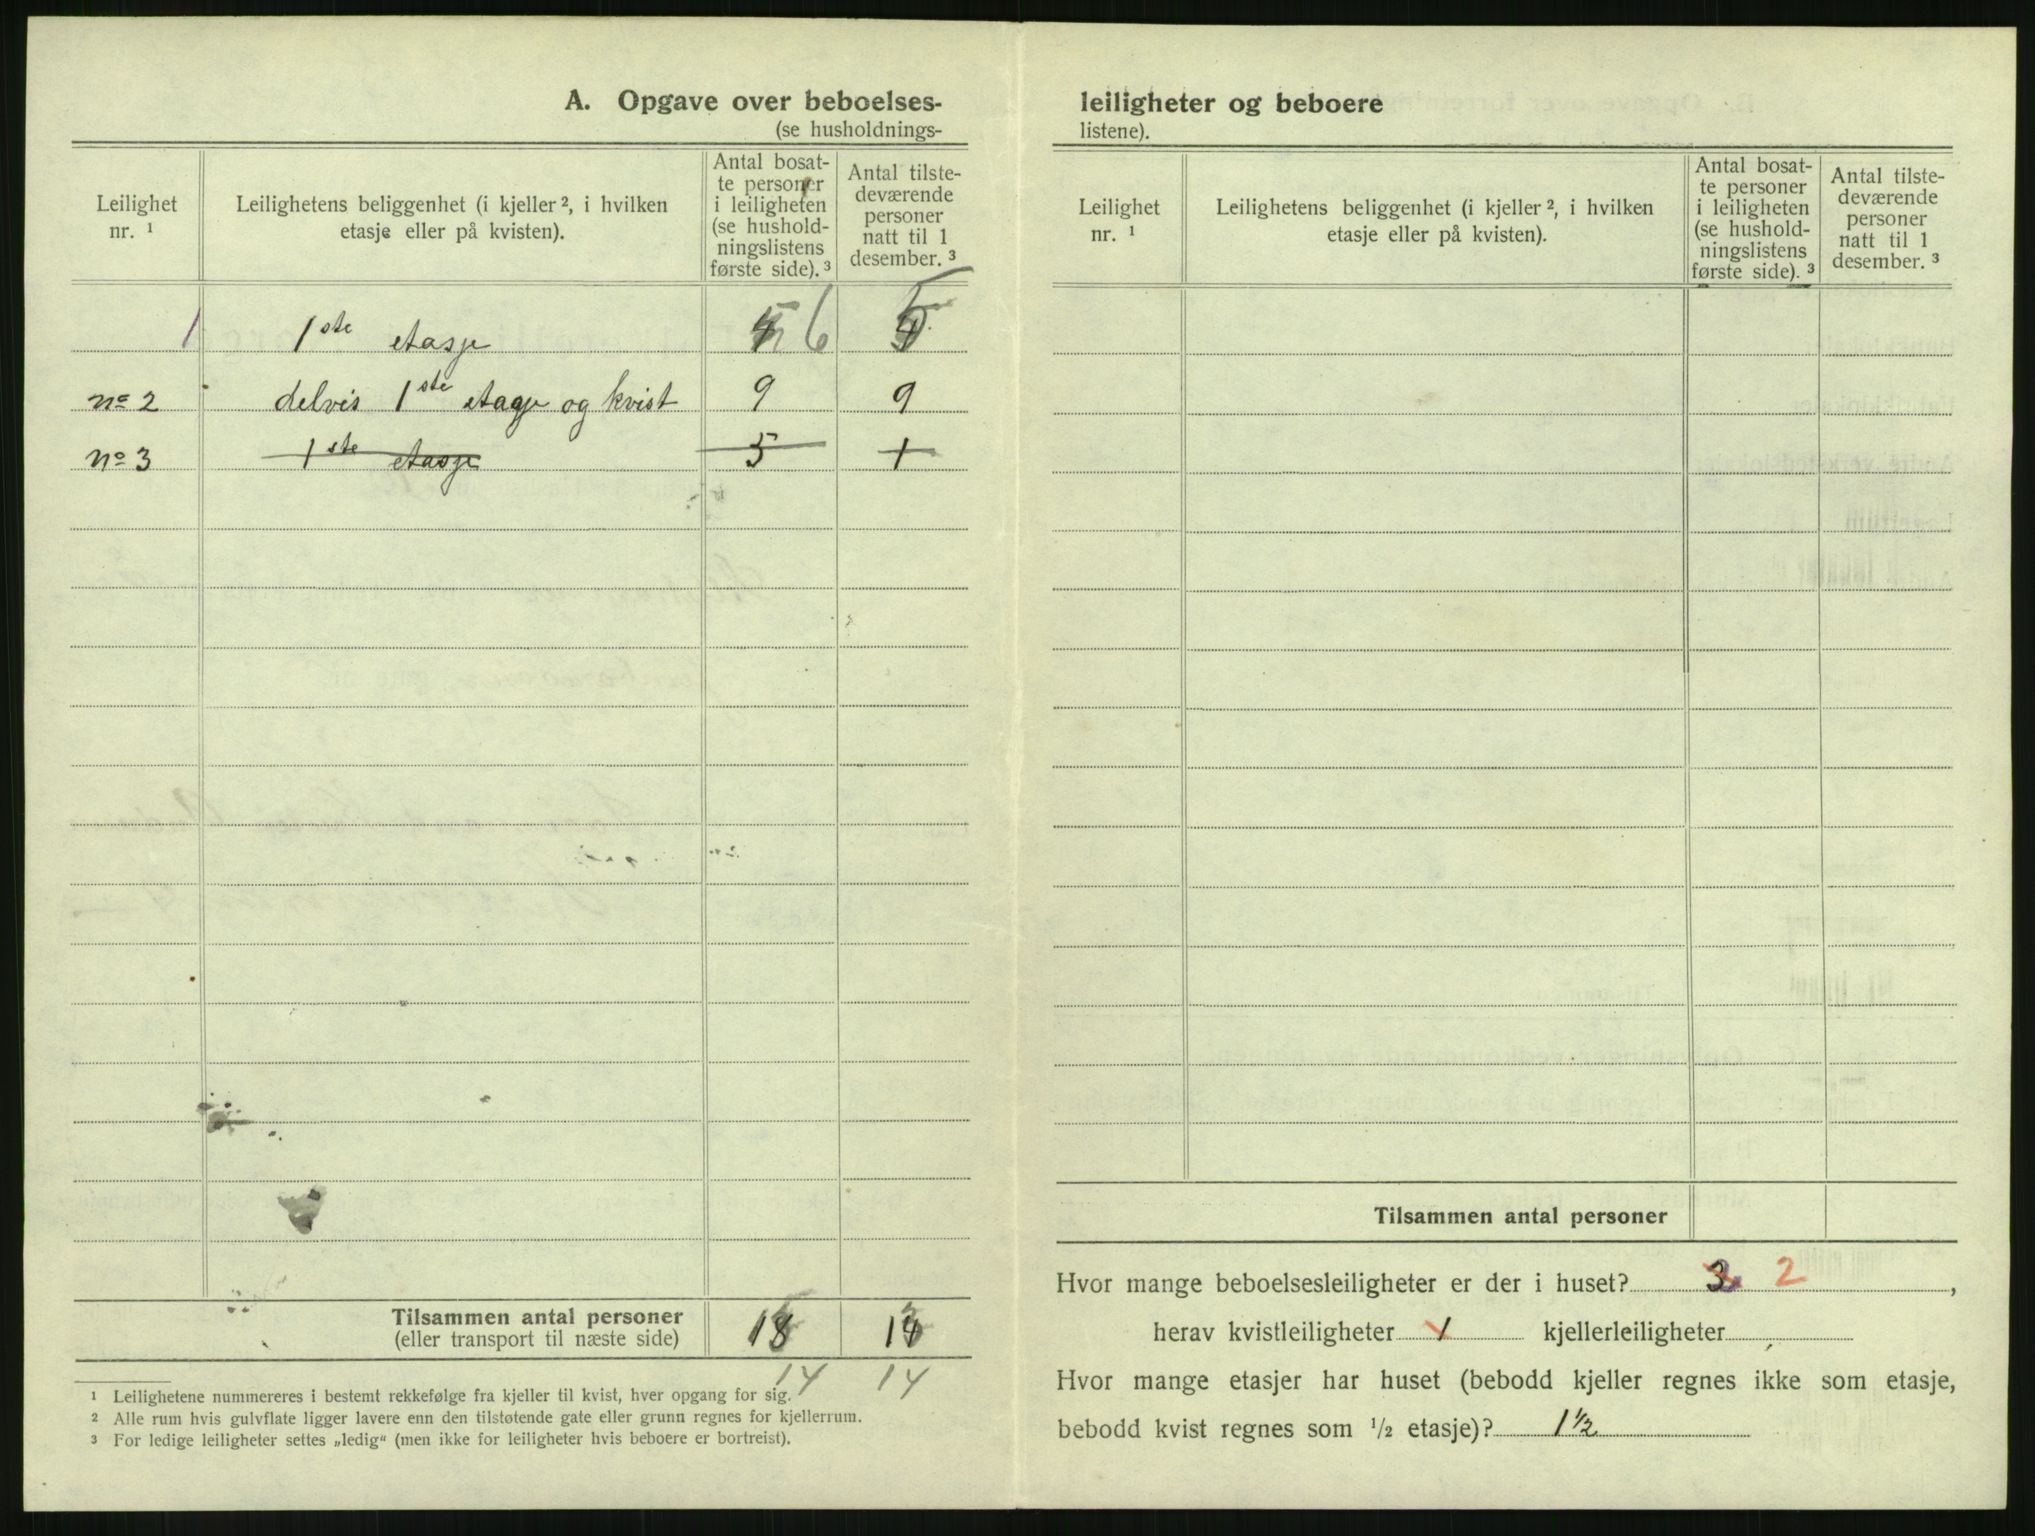 A. Opgave over beboelses-
(se husholdnings-
Leilighet nr. 1
Leilighetens beliggenhet (i kjeller 2, i hvilken etasje eller på kvisten).
Antal bosat-
te personer
i leiligheten
(se hushold-
ningslistens
første side). 3
Antal tilste-
deværende
personer
natt til 1
desember. 3
1 1ste etasje 6 5
No 2 delvis 1ste etage og kvist 9 9
No 3 1ste etasje 5 1
Tilsammen antal personer
(eller transport til næste side)
14 14
1 Leilighetene nummereres i bestemt rekkefølge fra kjeller til kvist, hver opgang for sig.
2 Alle rum hvis gulvflate ligger lavere enn den tilstøtende gate eller grunn regnes for kjellerrum.
3 For ledige leiligheter settes „ledig“ (men ikke for leiligheter hvis beboere er bortreist).
leiligheter og beboere
listene).
Leilighet nr. 1
Leilighetens beliggenhet (i kjeller 2, i hvilken etasje eller på kvisten).
Antal bosat-
te personer
i leiligheten
(se hushold-
ningslistens
første side). 3
Antal tilste-
deværende
personer
natt til 1
desember. 3
Tilsammen antal personer
Hvor mange beboelsesleiligheter er der i huset? 3 2,
herav kvistleiligheter 1 kjellerleiligheter
Hvor mange etasjer har huset (bebodd kjeller regnes ikke som etasje,
bebodd kvist regnes som 1/2 etasje)? 1 1/2